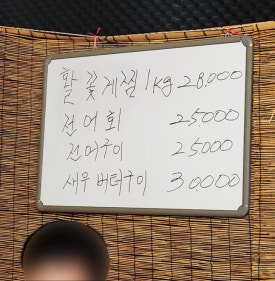 활 꽃게찜 1kg 28.000
전어회 25000
전어구이 25000
새우 버터구이 30.000